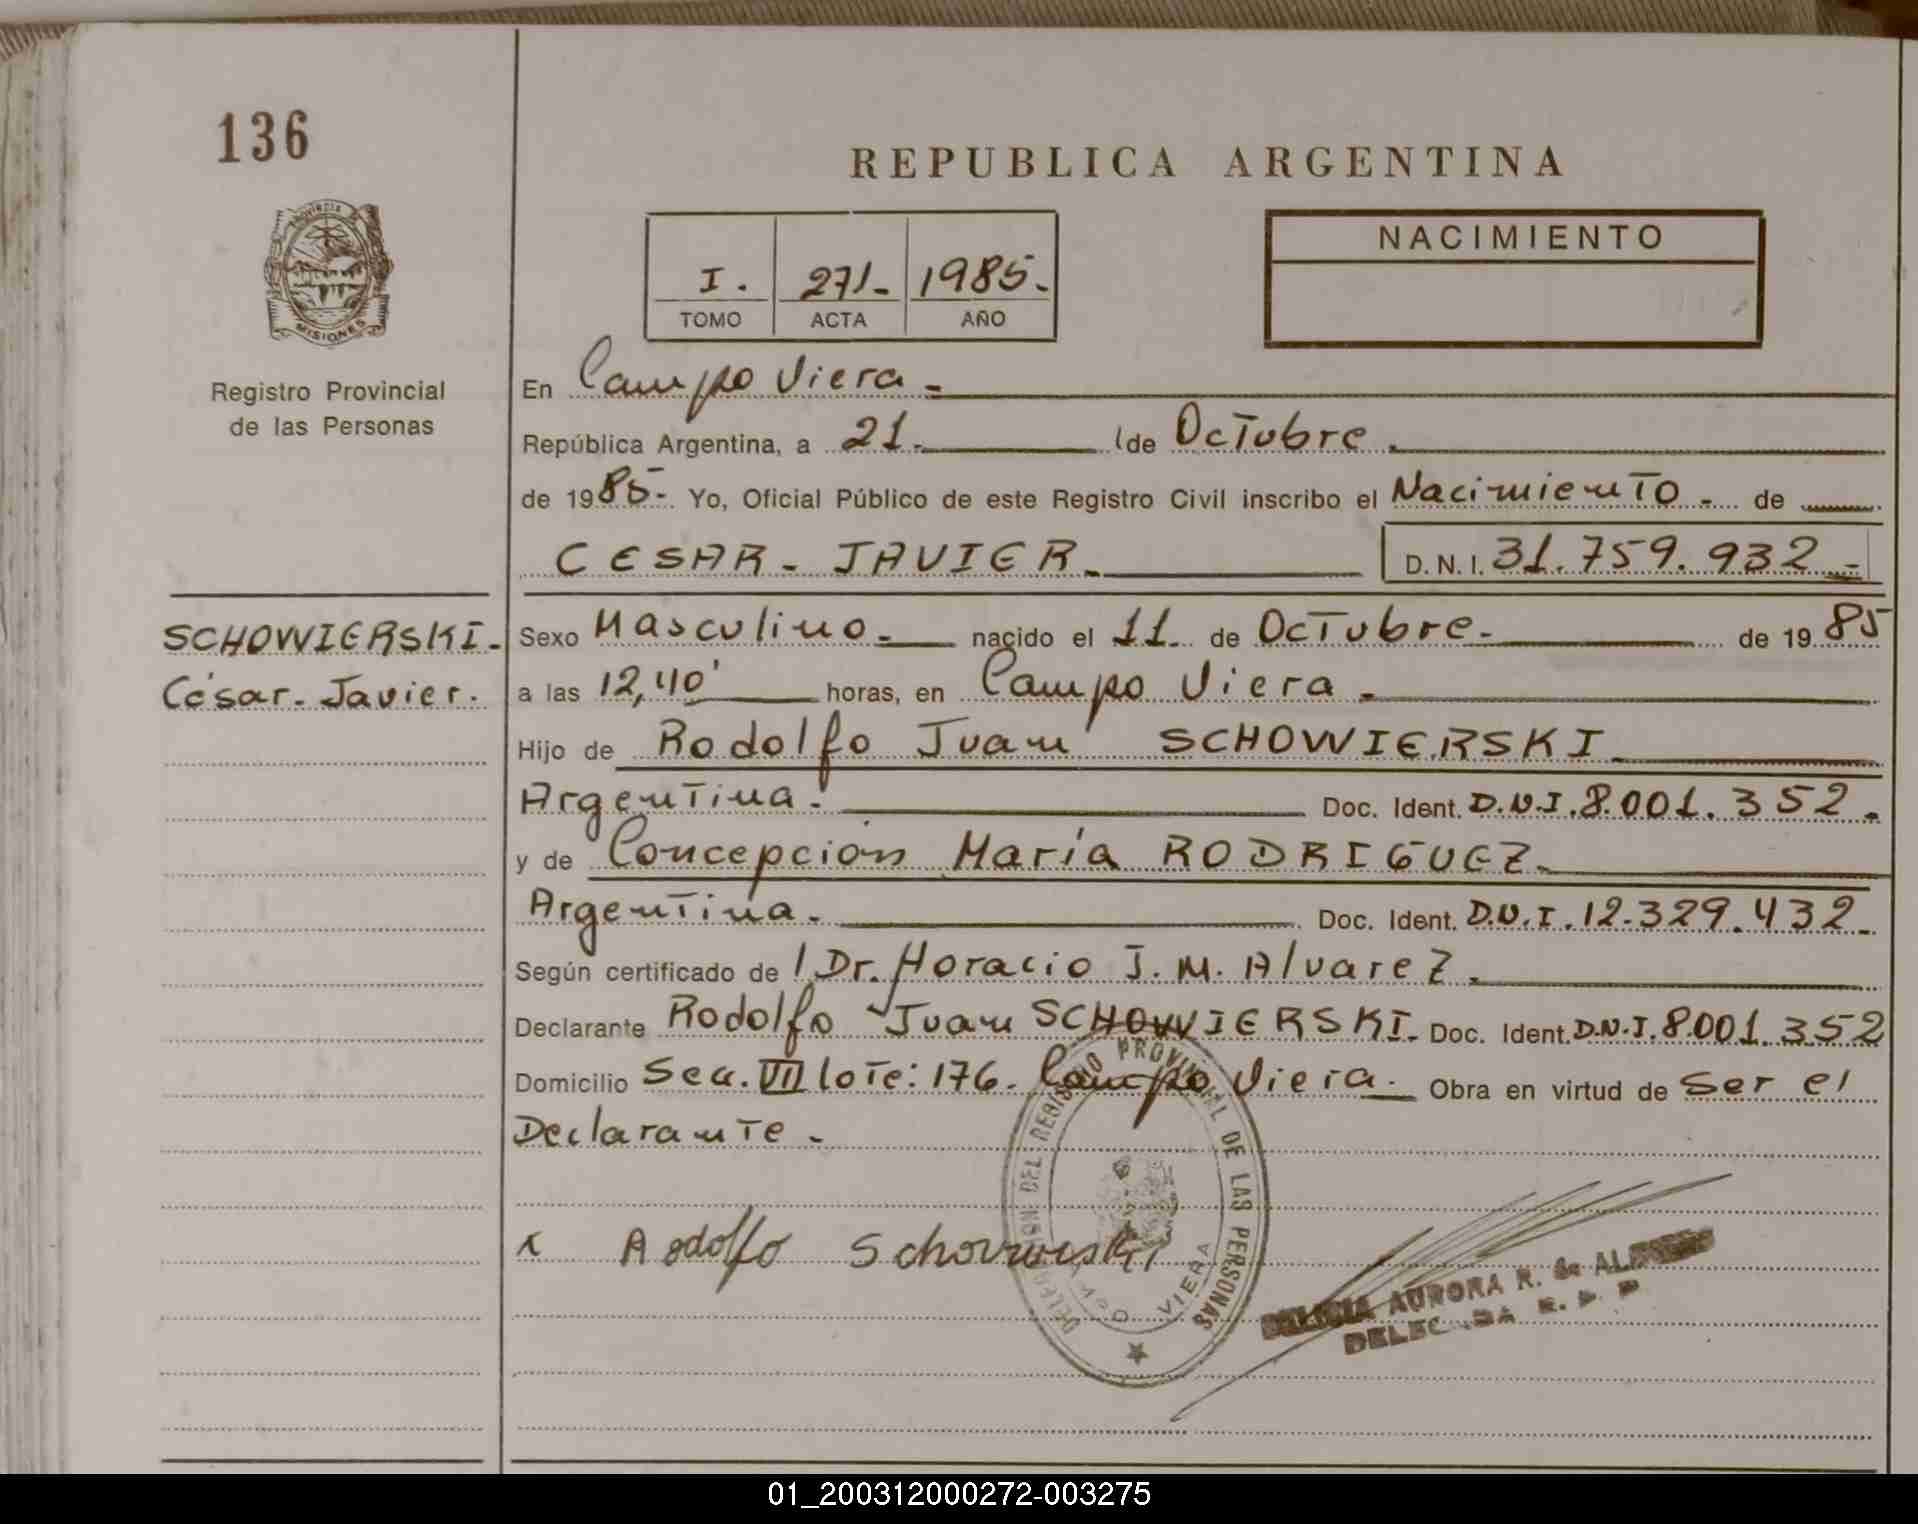 136
REPUBLICA ARGENTINA
PROVINCIA DE
MISIONES
Registro Provincial
de las Personas
I. 271- 1985.-
TOMO ACTA AÑO
NACIMIENTO
En Campo Viera.-
República Argentina, a 21.- de Octubre.
de 1985.- Yo, Oficial Público de este Registro Civil inscribo el Nacimiento.- de
CESAR - JAVIER.- D.N.I. 31.759.932.-
SCHOWIERSKI.-
César - Javier.
Sexo Masculino.- nacido el 11.. de Octubre.- de 1985
a las 12,40' horas, en Campo Viera.-
Hijo de Rodolfo Juan SCHOWIERSKI
Argentina.- Doc. Ident. D.N.I. 8.001.352.
y de Concepción María RODRIGUEZ.
Argentina.- Doc. Ident. D.N.I. 12.329.432.-
Según certificado de Dr. Horacio J. M. Alvarez.
Declarante Rodolfo Juan SCHOWIERSKI. Doc. Ident. D.N.I. 8.001.352
Domicilio Sec. VII lote: 176. Campo Viera.- Obra en virtud de Ser el
Declarante.-
DELEGACION DEL REGISTRO PROVINCIAL DE LAS PERSONAS
VIERA
x Rodolfo Schowierski
AURORA R. de
DELEGADA R. P. P.
01_200312000272-003275